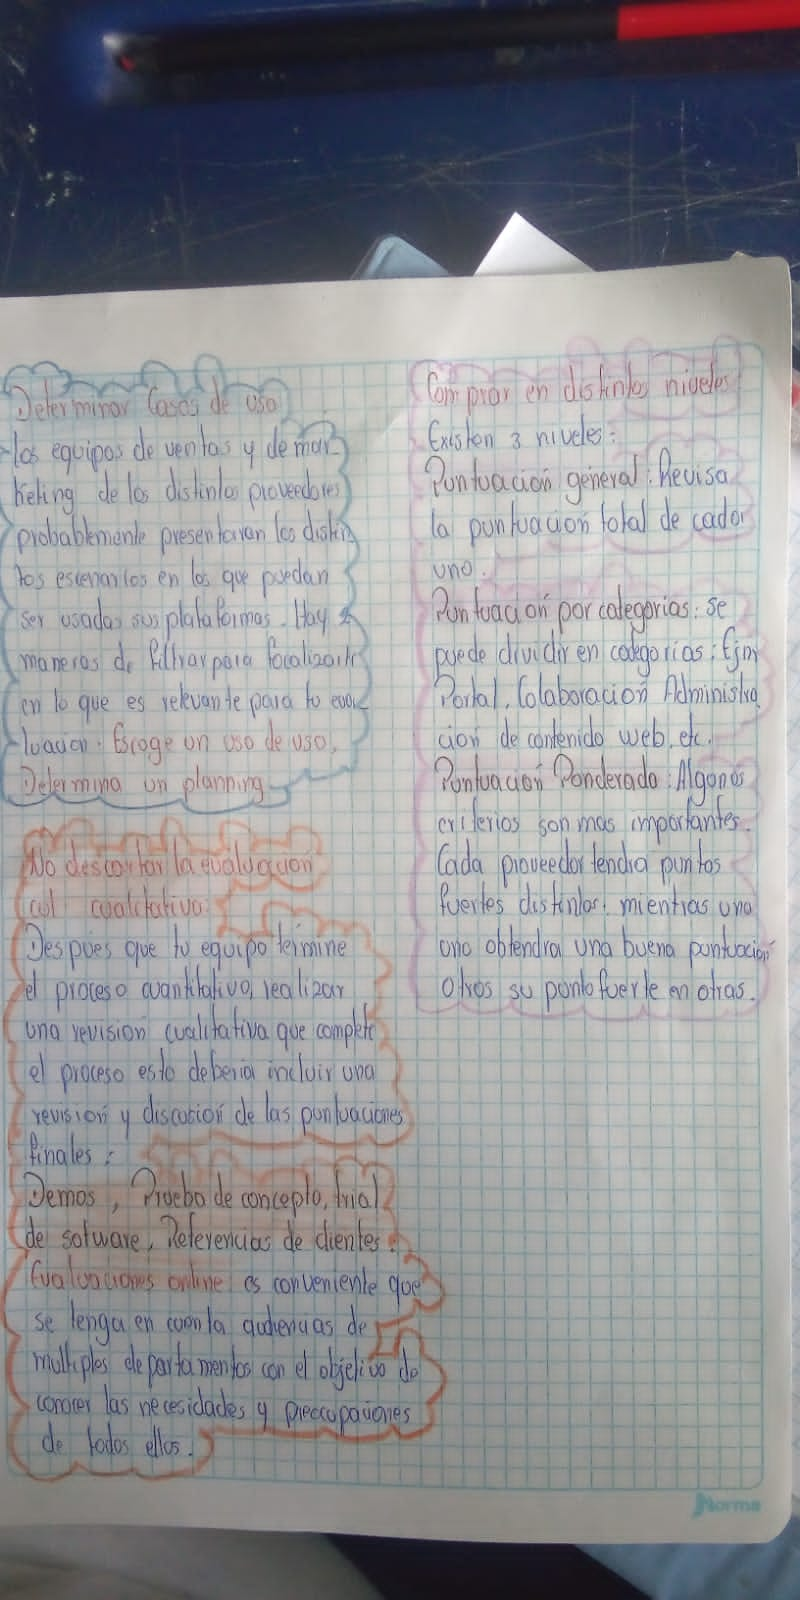 Determinar Casos de uso
los equipos de ventas y de mar
keting de los distintos proveedores
probablemente presentaran los distin
tos escenarios en los que puedan
ser usadas sus plataformas. Hay 2
maneras de filtrar para focalizarte
en lo que es relevante para tu eva
luacion. Escoge un uso de uso,
Determina un planning
No descartar la evaluacion
cualitativa:
Despues que tu equipo termine
el proceso cuantitativo, realizar
una revisión cualitativa que complete
el proceso esto deberia incluir una
revisión y discusión de las puntuaciones
finales:
Demos, Prueba de concepto, trial
de sotware, Referencias de clientes.
Evaluaciones online es conveniente que
se tenga en cuenta audiencias de
multiples departamentos con el objetivo de
conocer las necesidades y preocupaciones
de todos ellos.
Comprar en distintos niveles
Existen 3 niveles:
Puntuación general: Revisa
la puntuación total de cada
uno.
Puntuación por categorias: se
puede dividir en categorias: Ejm
Portal, Colaboración Administra
ción de contenido web, etc.
Puntuación Ponderada: Algunos
criterios son mas importantes.
Cada proveedor tendra puntos
fuertes distintos, mientras uno
uno obtendra una buena puntuación
otros su punto fuerte en otras.
Norma